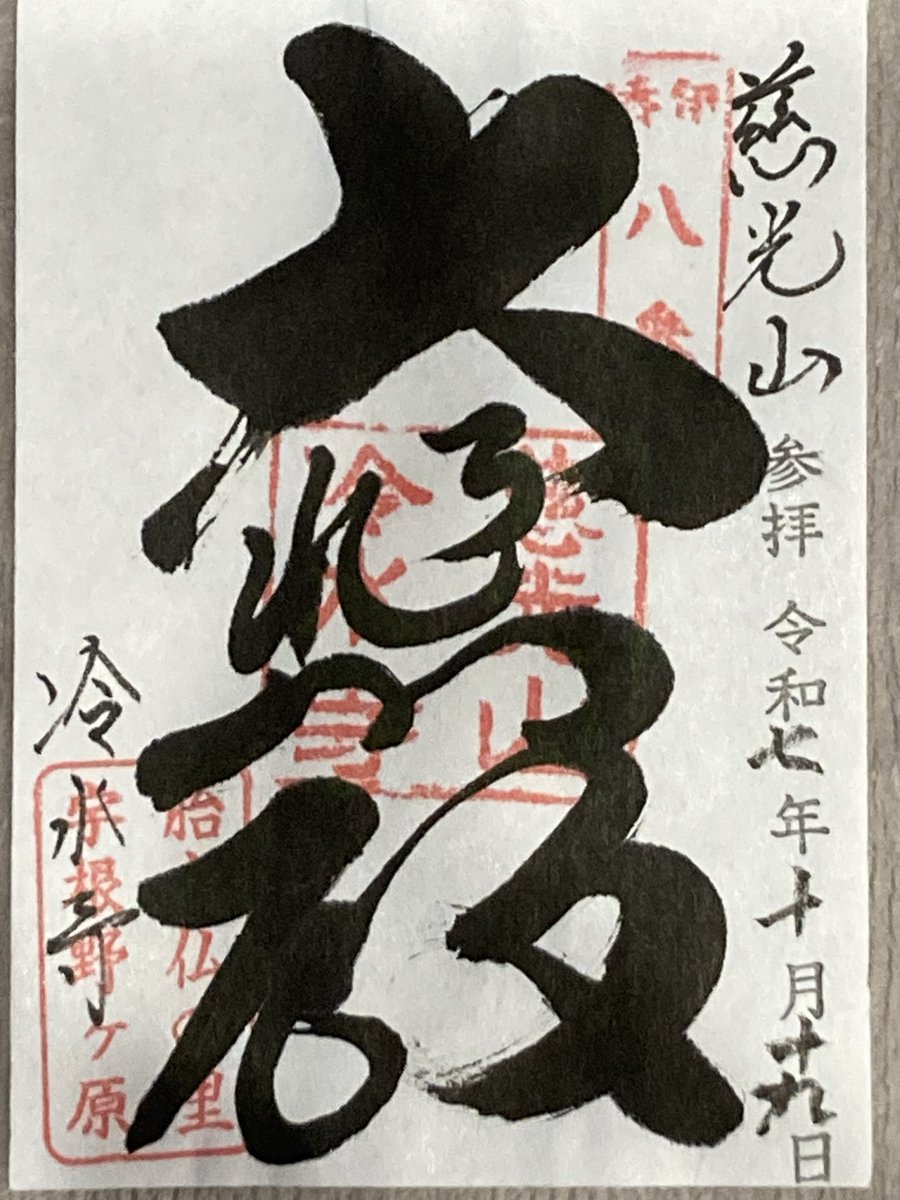 慈光山 参拝 令和七年十月十九日
伊香
八番
大悲殿
慈光山
冷水寺
冷水寺
胎内仏の里
宇根野ヶ原